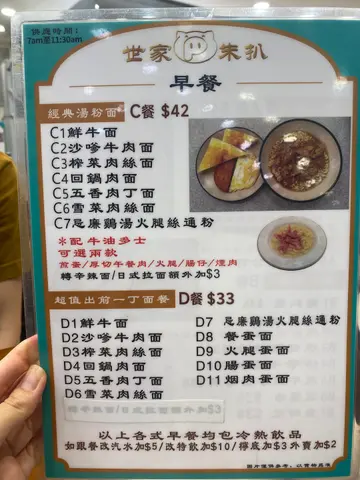 供應時間：
7am至11:30am
世家 朱扒
早餐
經典湯粉面 C餐 $42
C1鮮牛面
C2沙嗲牛肉面
C3榨菜肉絲面
C4回鍋肉面
C5五香肉丁面
C6雪菜肉絲面
C7忌廉鷄湯火腿絲通粉
*配牛油多士
可選兩款
煎蛋/厚切午餐肉/火腿/腸仔/煙肉
轉辛辣面/日式拉面額外加$3
超值出前一丁面餐 D餐 $33
D1鮮牛面
D2沙嗲牛肉面
D3榨菜肉絲面
D4回鍋肉面
D5五香肉丁面
D6雪菜肉絲面
D7 忌廉鷄湯火腿絲通粉
D8 餐蛋面
D9 火腿蛋面
D10腸蛋面
D11煙肉蛋面
轉辛辣面/日式拉面額外加$3
以上各式早餐均包冷熱飲品
如跟餐改汽水加$5/改特飲加$10/檸底加$3外賣加$2